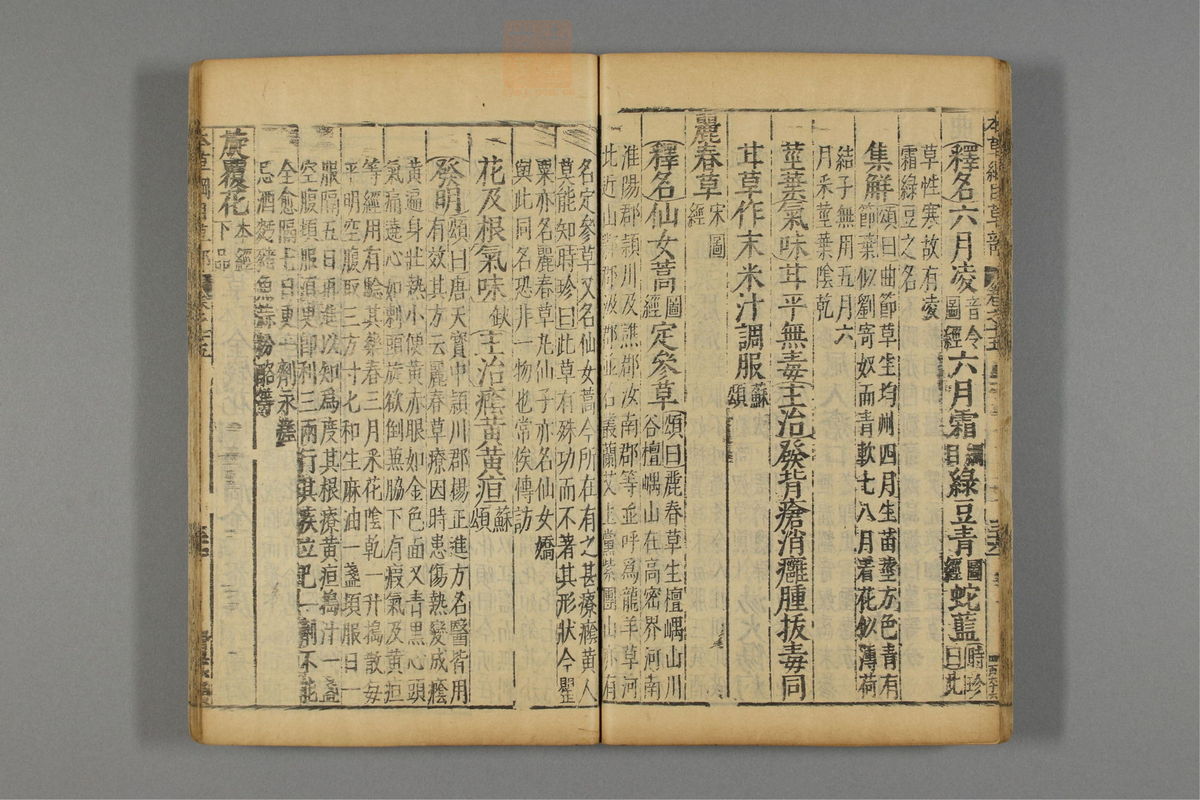 釋名六月凌音令圖經六月霜綱目綠豆青圖經蛇藍時珍曰此
草性寒故有凌
霜綠豆之名
集解頌曰曲節草生均州四月生苗莖方色青有
節葉似劉寄奴而青軟七八月着花似薄荷
結子無用五月六
月采莖葉陰乾
莖葉氣味甘平無毒主治發背瘡消癰腫拔毒同
甘草作末米汁調服蘇頌
麗春草宋圖經
釋名仙女蒿圖經定參草頌曰麗春草生檀嵎山川
谷檀嵎山在高密界河南
淮陽郡潁川及譙郡汝南郡等並呼爲龍羊草河
北近山鄴郡汲郡並名䕷蘭艾上黨紫團山亦有
名定參草又名仙女蒿今所在有之甚療癊黃人
草能知時珍曰此草有殊功而不著其形狀今罌
粟亦名麗春草九仙子亦名仙女嬌
與此同名恐非一物也當俟博訪
花及根氣味缺主治癊黃黃疸蘇頌
發明頌曰唐天寶中潁川郡楊正進方名醫皆用
有效其方云麗春草療因時患傷熱變成癊
黃遍身壯熱小便黃赤眼如金色面又青黑心頭
氣痛遶心如刺頭旋欲倒兼脇下有瘕氣及黃疸
等經用有驗其藥春三月采花陰乾一升搗散每
平明空腹取三方寸匕和生麻油一盞頓服日一
服隔五日再進以知爲度其根療黃疸搗汁一盞
空腹頓服須臾即利三兩行其疾立已一劑不能
全愈隔七日更一劑永瘥
忌酒麪豬魚蒜粉酪等
旋覆花本經下品